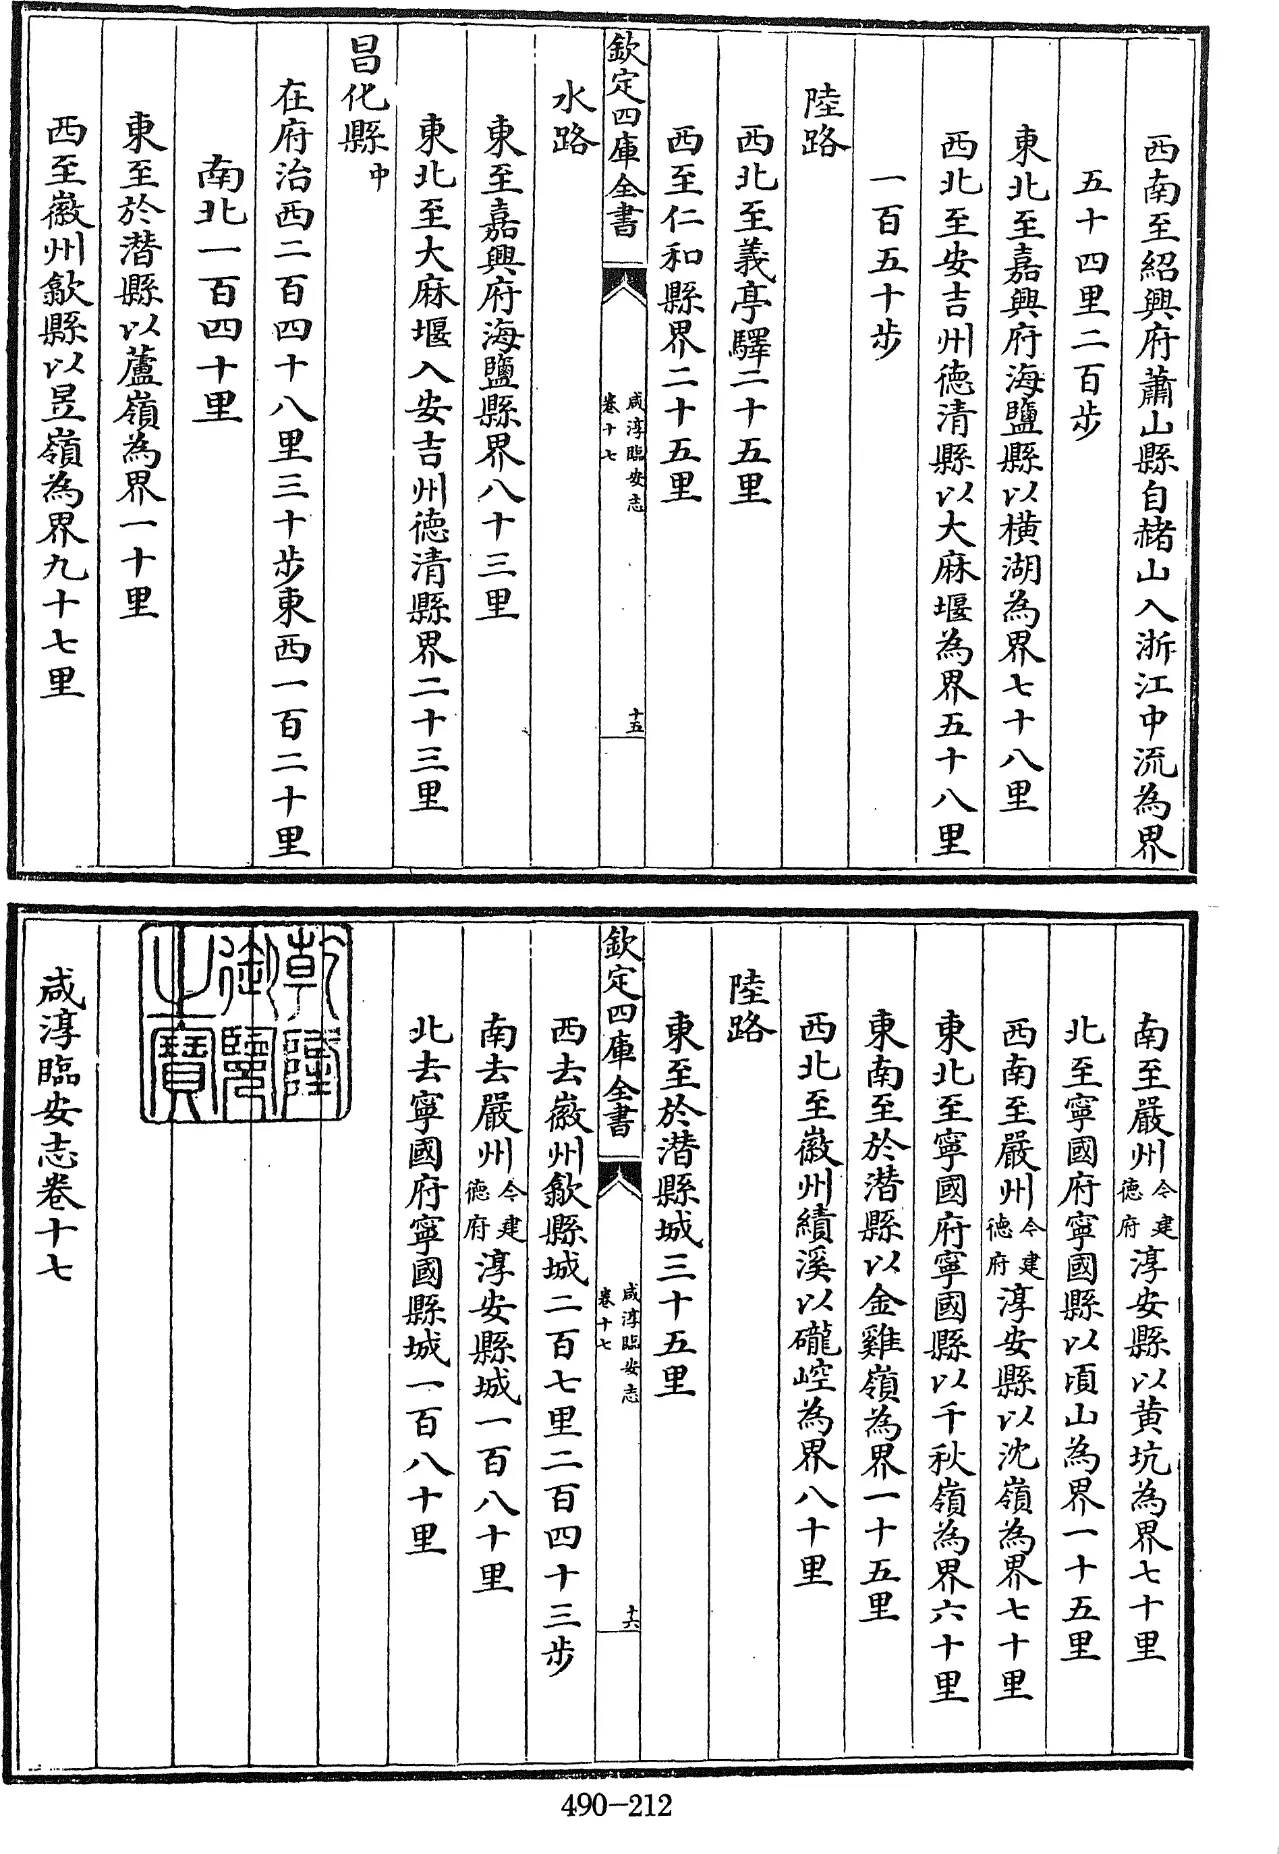 西南至紹興府蕭山縣自赭山入浙江中流為界
五十四里二百步
東北至嘉興府海鹽縣以橫湖為界七十八里
西北至安吉州德清縣以大麻堰為界五十八里
一百五十步
陸路
西北至義亭驛二十五里
西至仁和縣界二十五里
欽定四庫全書
咸淳臨安志
卷十七
十五
水路
東至嘉興府海鹽縣界八十三里
東北至大麻堰入安吉州德清縣界二十三里
昌化縣中
在府治西二百四十八里三十步東西一百二十里
南北一百四十里
東至於潛縣以蘆嶺為界一十里
西至徽州歙縣以昱嶺為界九十七里
南至嚴州今建德府淳安縣以黄坑為界七十里
北至寧國府寧國縣以頃山為界一十五里
西南至嚴州今建德府淳安縣以沈嶺為界七十里
東北至寧國府寧國縣以千秋嶺為界六十里
東南至於潛縣以金雞嶺為界一十五里
西北至徽州績溪以礲崆為界八十里
陸路
東至於潛縣城三十五里
欽定四庫全書
咸淳臨安志
卷十七
十六
西去徽州歙縣城二百七里二百四十三步
南去嚴州今建德府淳安縣城一百八十里
北去寧國府寧國縣城一百八十里
乾隆
御覽
之寶
咸淳臨安志卷十七
490-212